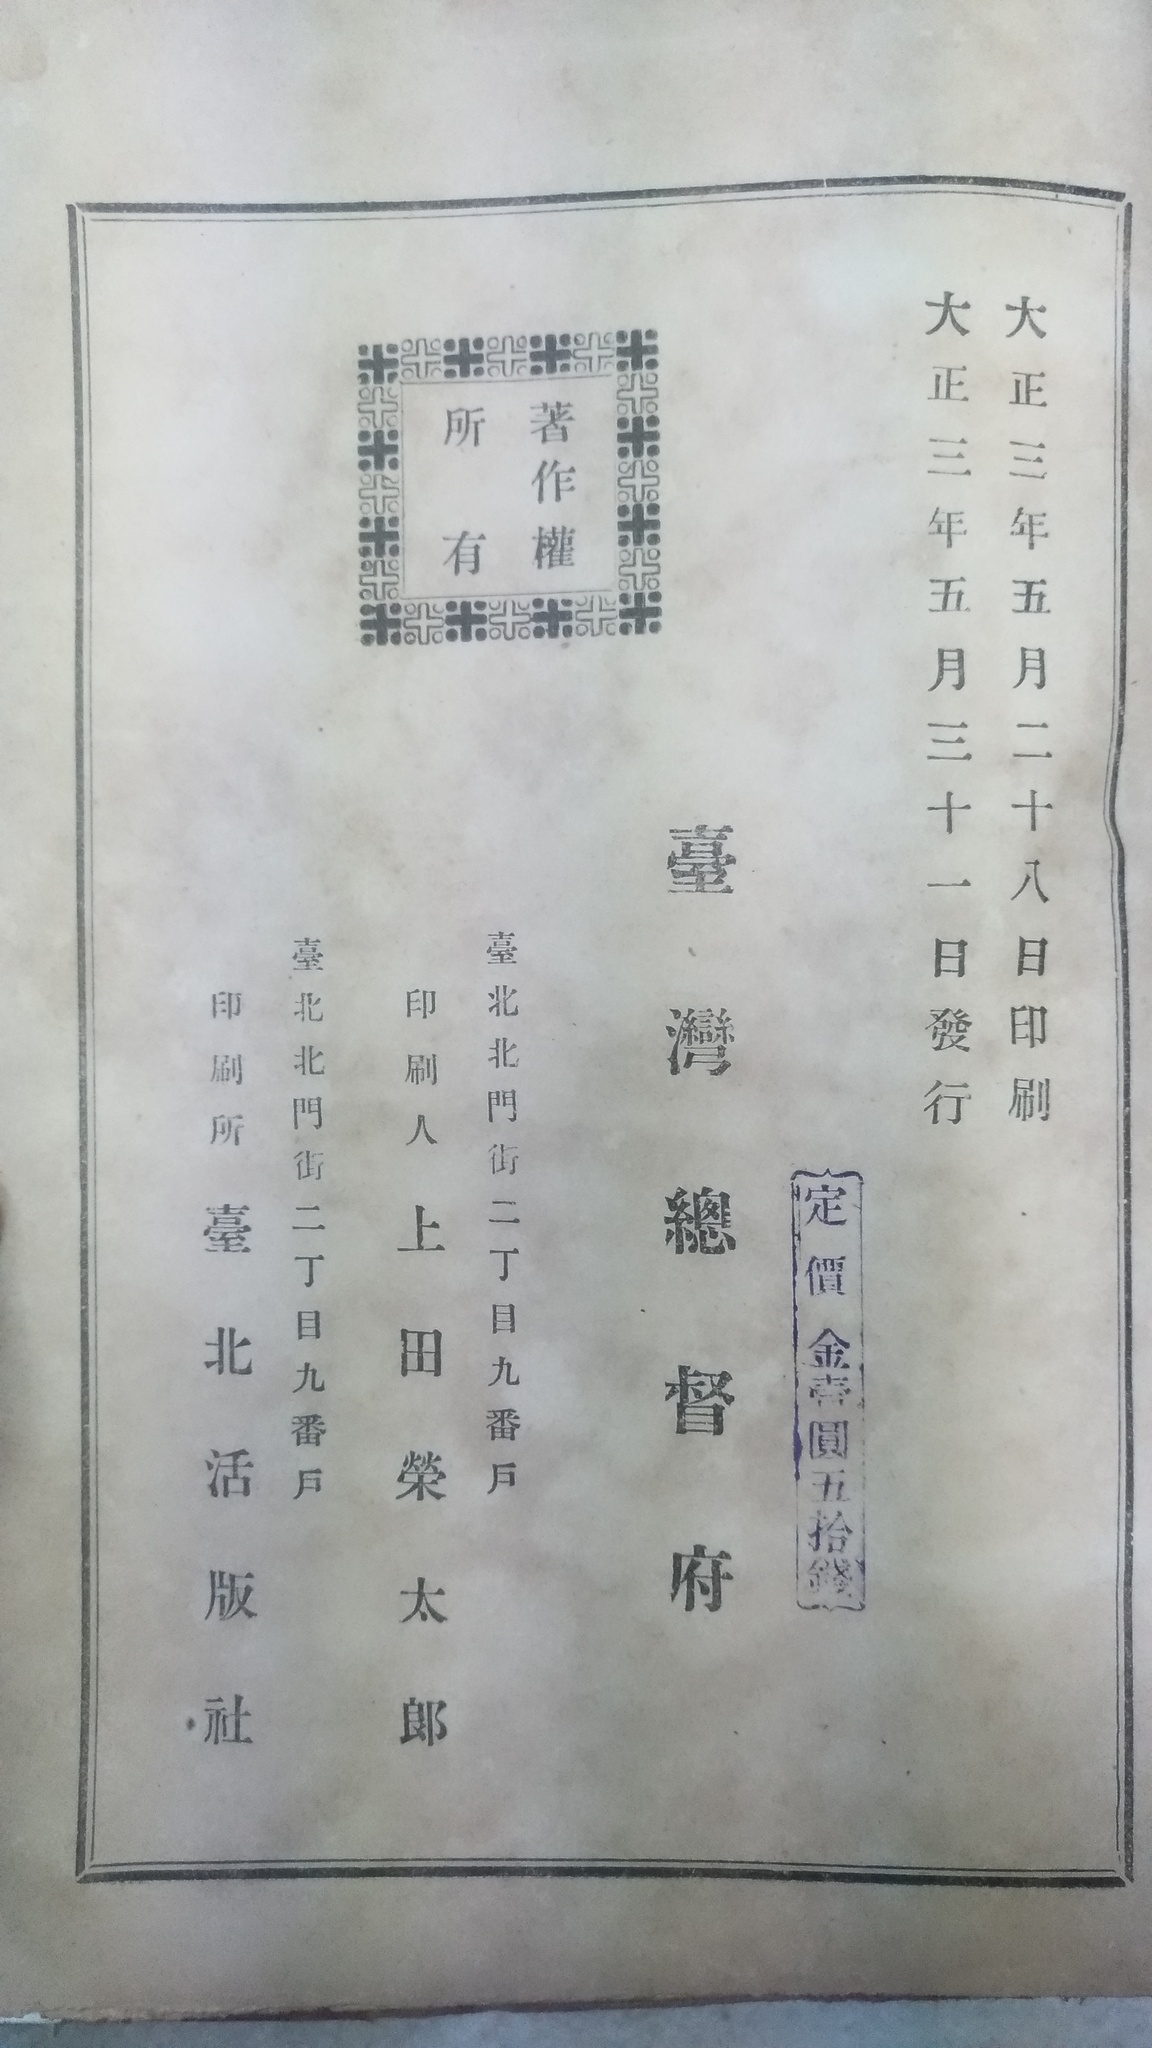 大正三年五月二十八日印刷
大正三年五月三十一日發行
定價金壹圓五拾錢
臺灣總督府
著作權
所有
臺北北門街二丁目九番戶
印刷人上田榮太郎
臺北北門街二丁目九番戶
印刷所臺北活版社